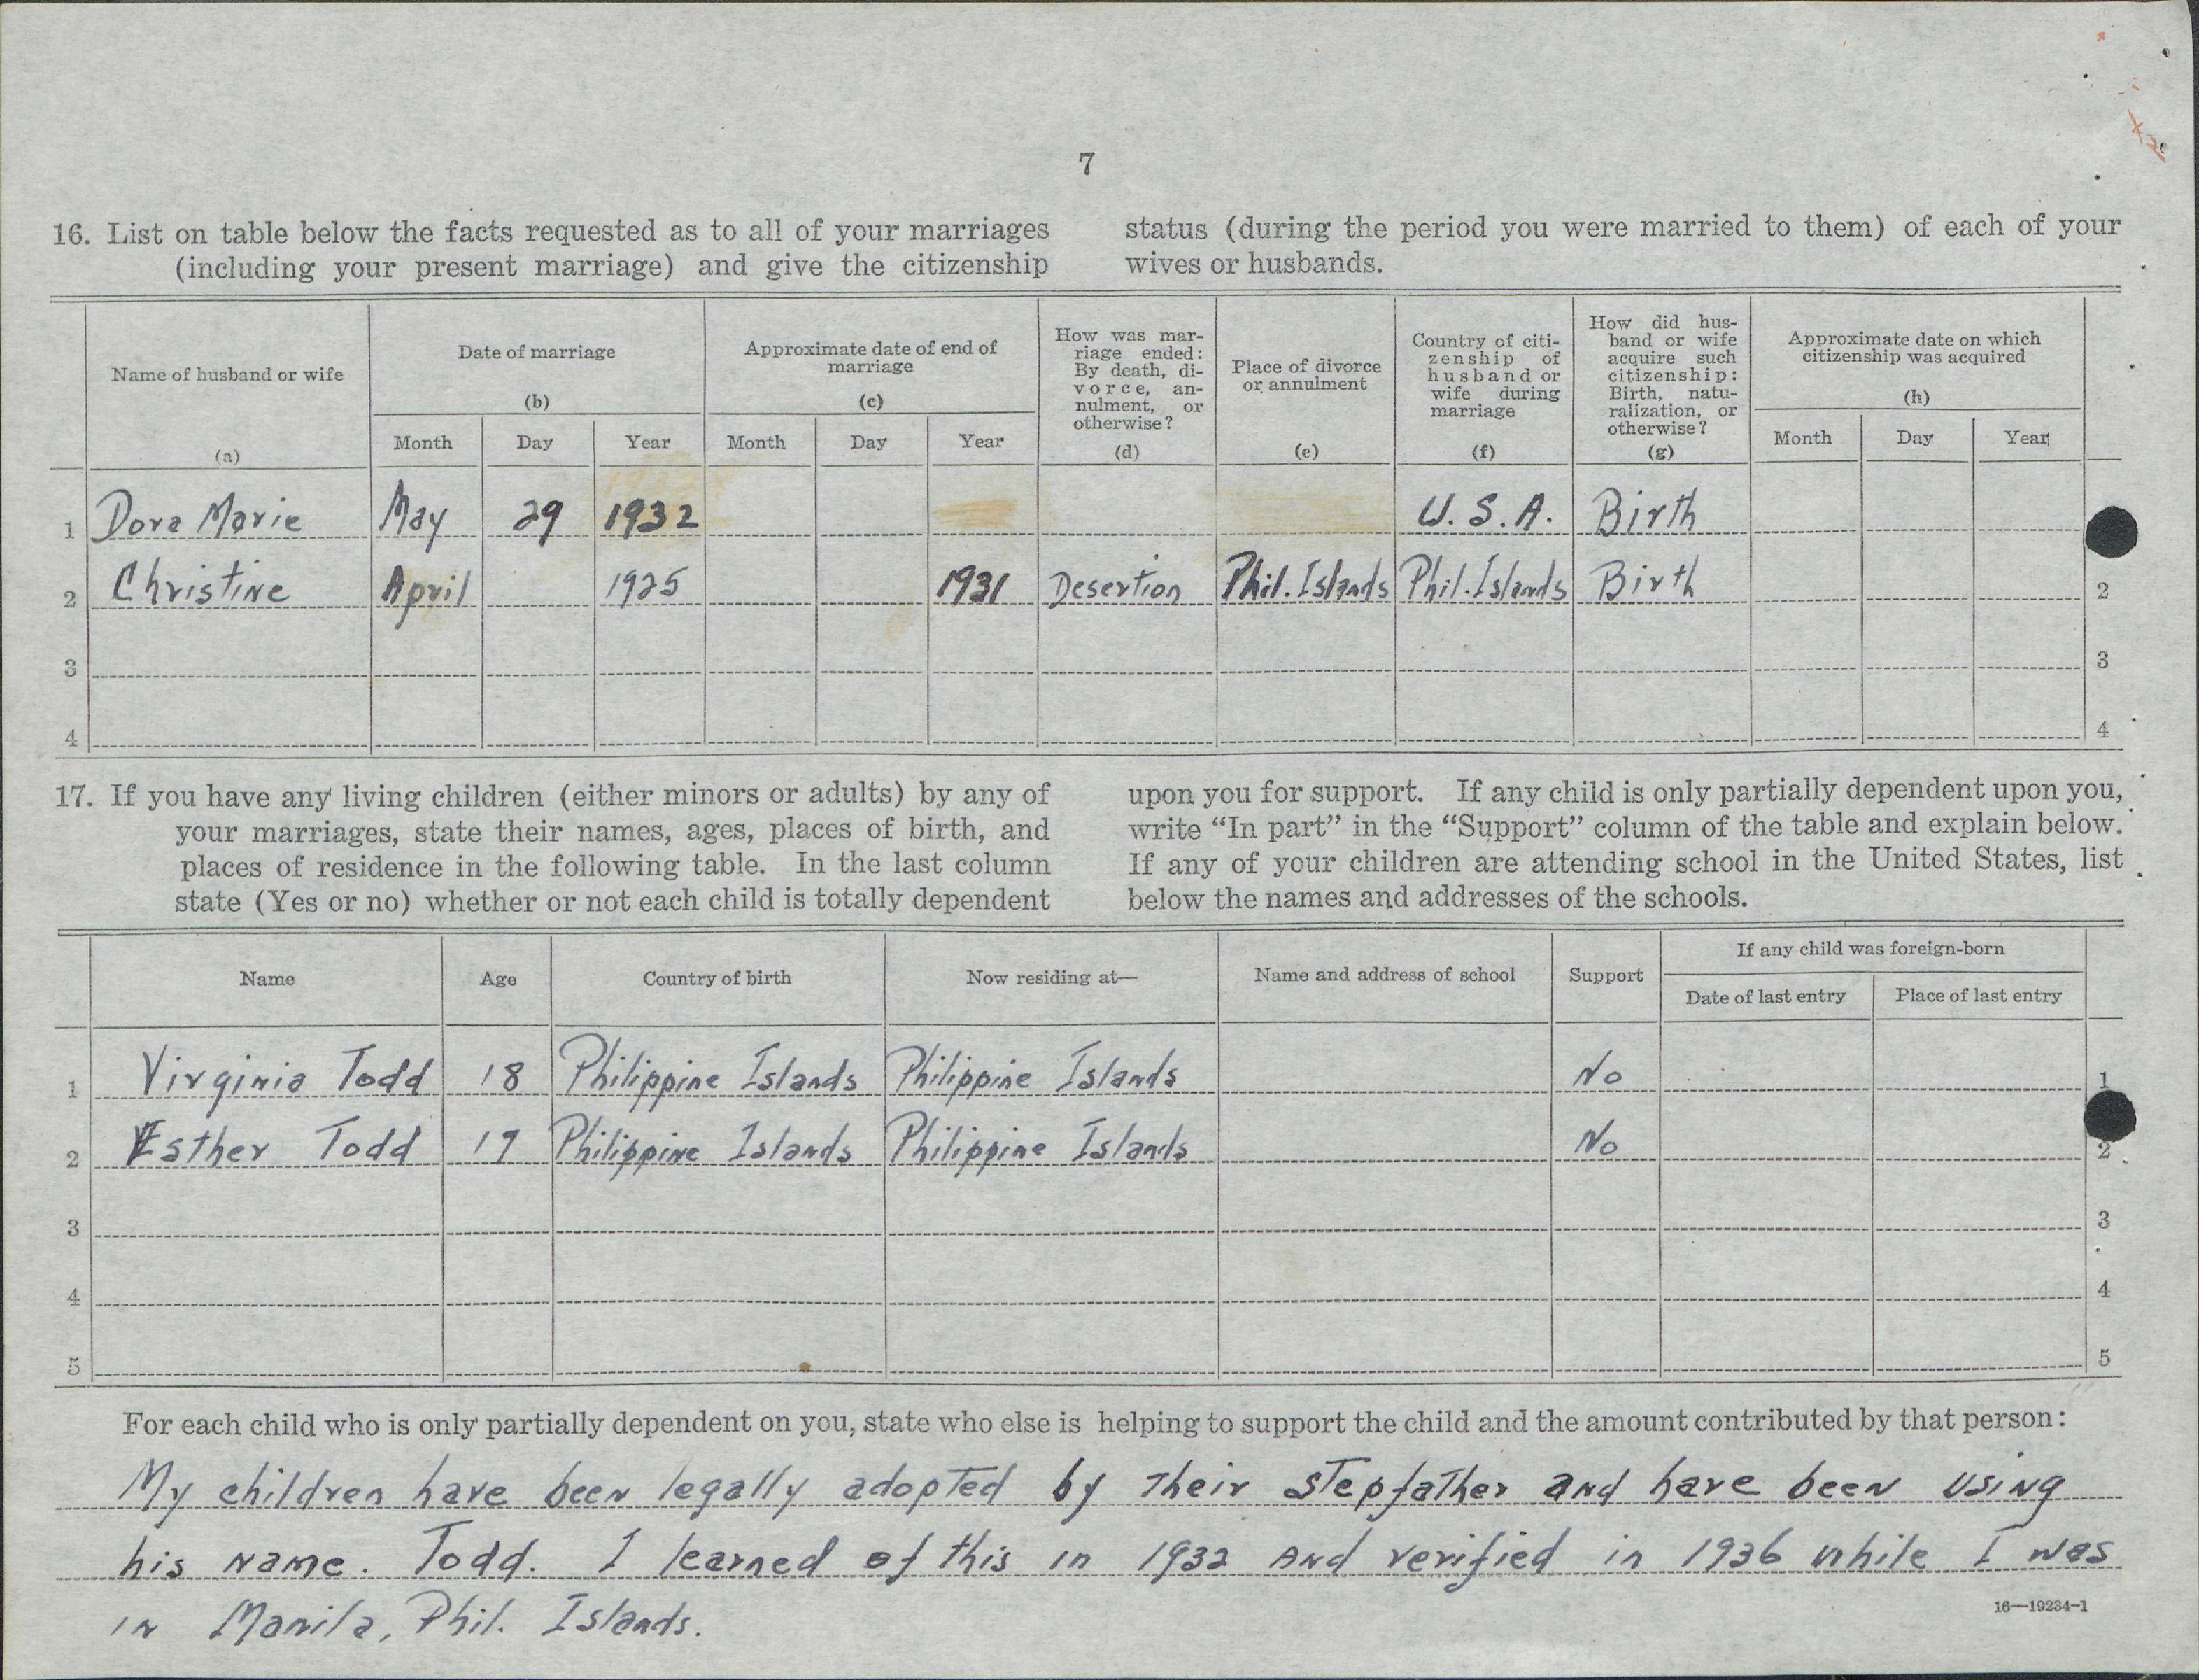 7
16. List on table below the facts requested as to all of your marriages
(including your present marriage) and give the citizenship
status (during the period you were married to them) of each of your
wives or husbands.
Name of husband or wife
(a)
Date of marriage
(b)
Month Day Year
Approximate date of end of
marriage
(c)
Month Day Year
How was mar-
riage ended:
By death, di-
vorce, an-
nulment, or
otherwise?
(d)
Place of divorce
or annulment
(e)
Country of citi-
zenship of
husband or
wife during
marriage
(f)
How did hus-
band or wife
acquire such
citizenship:
Birth, natu-
ralization, or
otherwise?
(g)
Approximate date on which
citizenship was acquired
(h)
Month Day Year
1 Dora Marie May 29 1932 U.S.A. Birth
2 Christine April 1925 1931 Desertion Phil. Islands Phil. Islands Birth 2
3 3
4 4
17. If you have any living children (either minors or adults) by any of
your marriages, state their names, ages, places of birth, and
places of residence in the following table. In the last column
state (Yes or no) whether or not each child is totally dependent
upon you for support. If any child is only partially dependent upon you,
write “In part” in the “Support” column of the table and explain below.
If any of your children are attending school in the United States, list
below the names and addresses of the schools.
Name
Age
Country of birth
Now residing at—
Name and address of school
Support
If any child was foreign-born
Date of last entry Place of last entry
1 Virginia Todd 18 Philippine Islands Philippine Islands No 1
2 Esther Todd 17 Philippine Islands Philippine Islands No 2
3 3
4 4
5 5
For each child who is only partially dependent on you, state who else is helping to support the child and the amount contributed by that person:
My children have been legally adopted by their stepfather and have been using
his name. Todd. I learned of this in 1932 and verified in 1936 while I was
in Manila, Phil. Islands.
16—19234-1